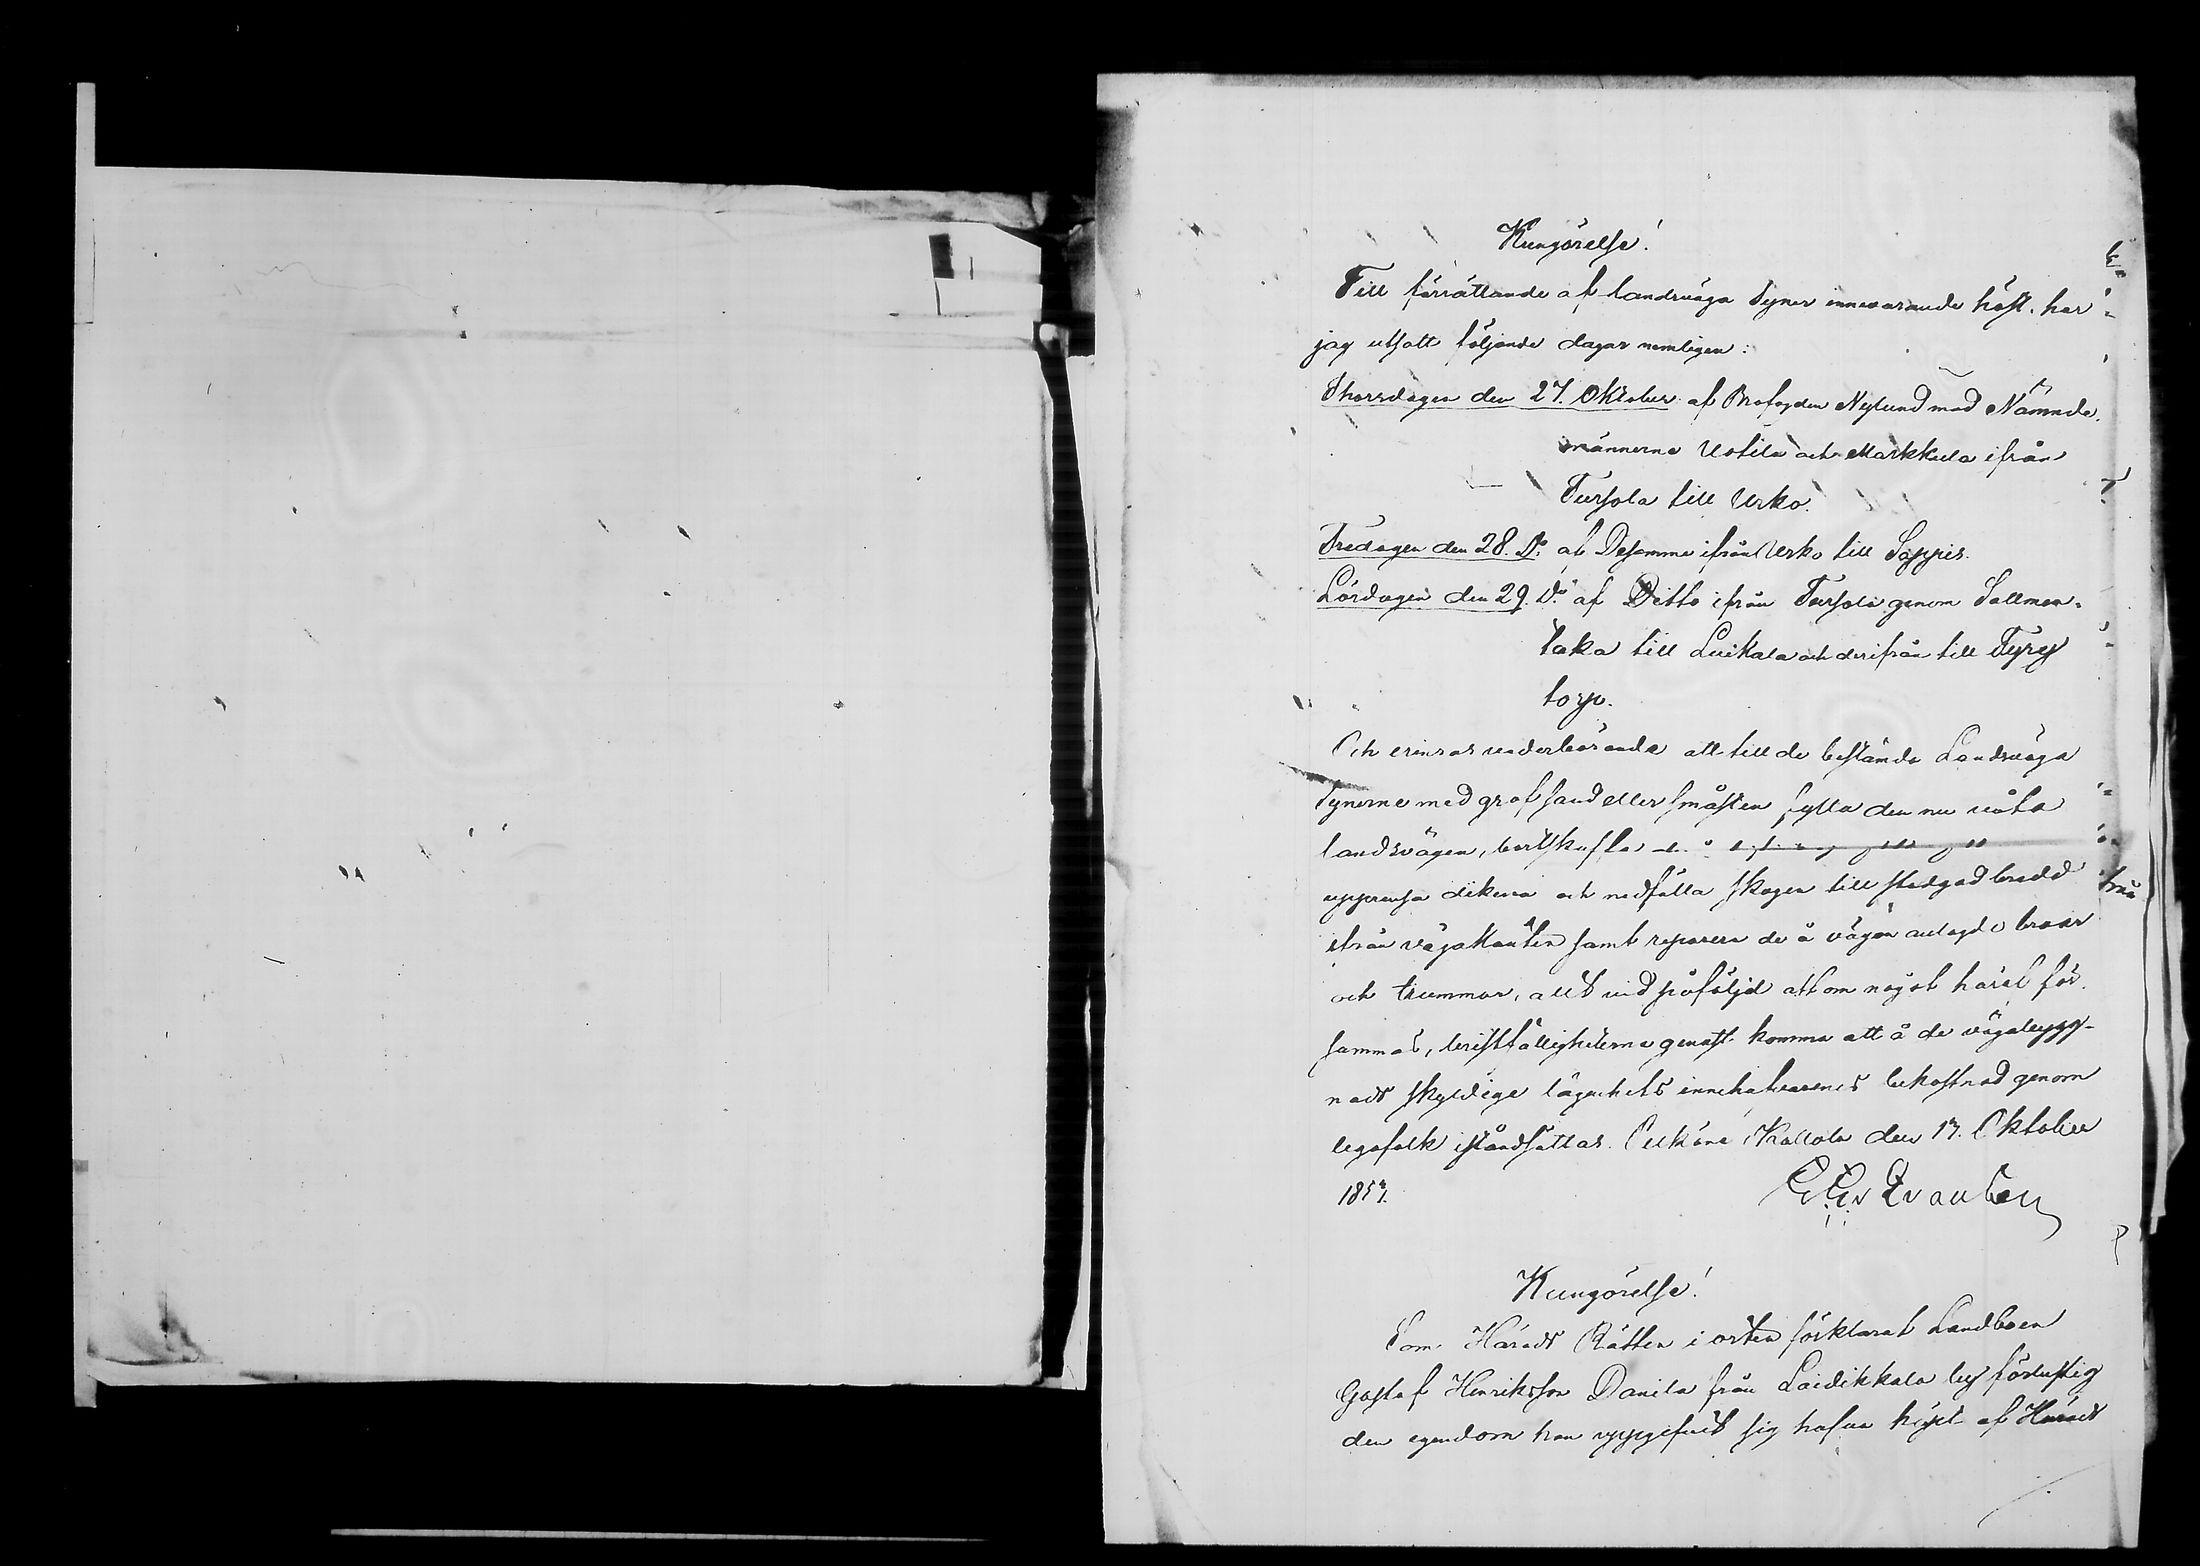 Kungörelse!
Till förrättande af landsvägs Syner innevarande höst, har
jag utsatt följande dagar nemligen:
Thorsdagen den 27. Oktober af Brofogden Nylund med Nämnde-
männerne Uotila och Markkula ifrån
Tursola till Urko.
Fredagen den 28. Do. af Desamma ifrån Urko till Sappis.
Lördagen den 29. Do. af Ditto ifrån Tursola genom Sallmen-
taka till Luikala och derifrån till Tyry
torp.
Och erinras vederbörande att till de bestämda Landsvägs
Synerne med grof sand eller småsten fylla den nu våta
landsvägen, bortskaffa
upprensa dikena och nedfälla skogen till stadgad bredd
ifrån vägakanten samt reparera de å vägen anlagde broar
och trummor, allt vid påföljd att om något häraf för-
sammas, bristfälligheterne genast komma att å de vägabygg-
nads skyldige lägenhets innehafvarenes bekostnad genom
legofolk iståndsättas. Pelkäne Kallola den 17. Oktober
185
Kungörelse!
Som Härads Rätten i orten förklarat Landboen
Gustaf Henriksson Danila från Laidikkala by förlustig
den egendom han uppgifvit sig hafva köpt af Härads